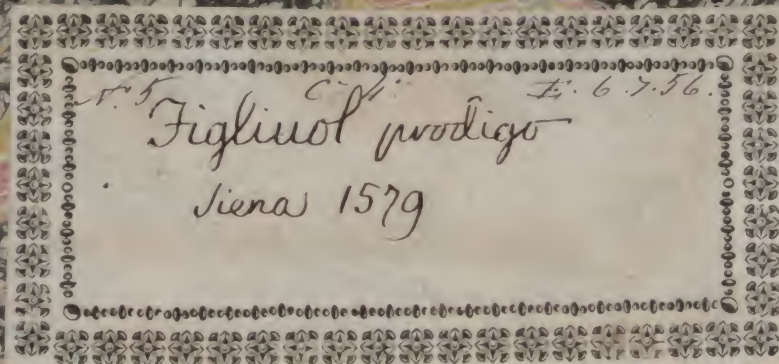 N. 5 E. 6.7.56.
Figliuol prodigo
Siena 1579